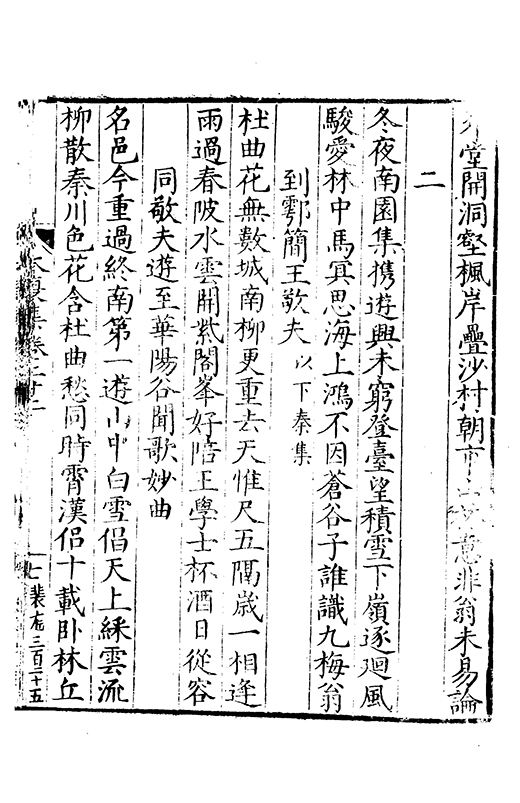 堂開洞壑楓岸疊沙村朝市意非翁未易論
二
冬夜南園集携遊興未窮登臺望積雪下嶺逐廻風
駿愛林中馬冥思海上鴻不因蒼谷子誰識九梅翁
到鄠簡王敬夫以下秦集
杜曲花無數城南柳更重去天惟尺五隔歲一相逢
雨過春陂水雲開紫閣峯好陪王學士杯酒日從容
同敬夫遊至華陽谷聞歌妙曲
名邑今重過終南第一遊山中白雪倡天上綵雲流
柳散秦川色花含杜曲愁同時霄漢侶十載卧林丘
復集卷之廿一
七 裴龙三百二十五